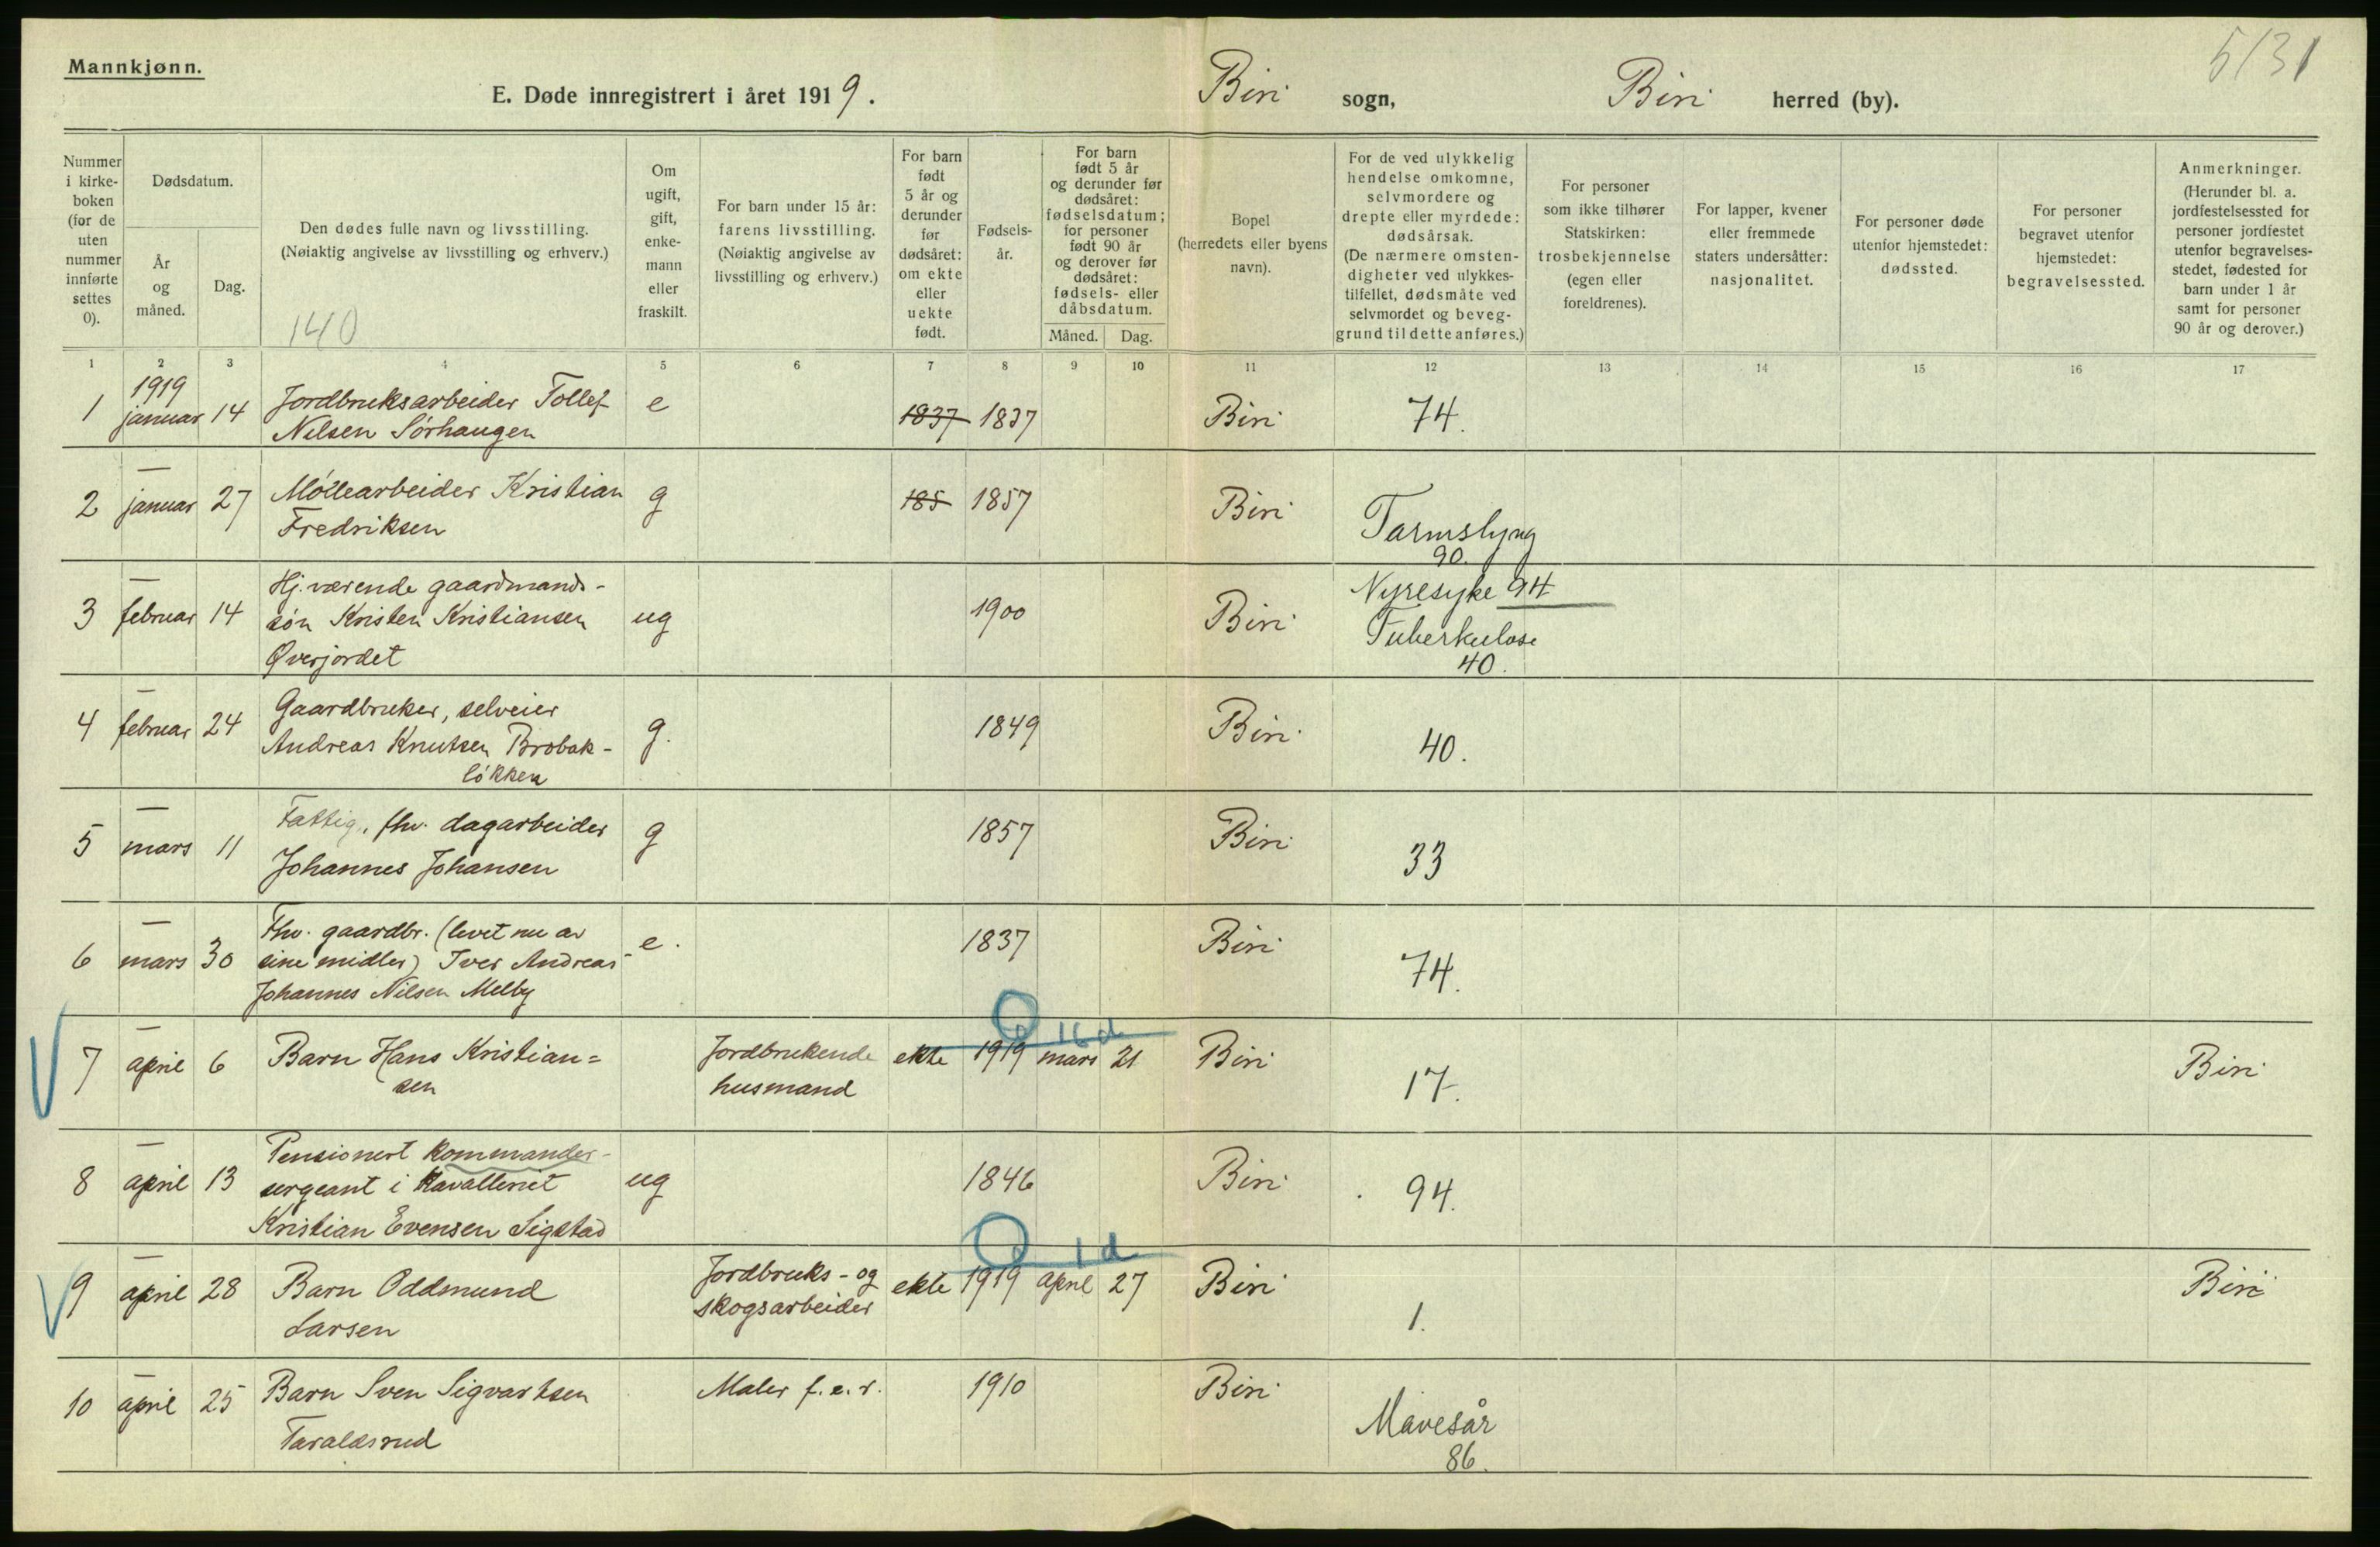 Mannkjønn.
5131
E. Døde innregistrert i året 1919.
Biri sogn,
Biri herred (by).
Nummer
i kirke-
boken
(for de
uten
nummer
innførte
settes
0).
Dødsdatum.
År
og
måned.
Dag.
Den dødes fulle navn og livsstilling.
(Nøiaktig angivelse av livsstilling og erhverv.)
140
Om
ugift,
gift,
enke-
mann
eller
fraskilt.
For barn under 15 år:
farens livsstilling.
(Nøiaktig angivelse av
livsstilling og erhverv.)
For barn
født
5 år og
derunder
før
dødsåret:
om ekte
eller
uekte
født.
Fødsels-
år.
For barn
født 5 år
og derunder før
dødsåret:
fødselsdatum;
for personer
født 90 år
og derover før
dødsåret:
fødsels- eller
dåbsdatum.
Måned. Dag.
Bopel
(herredets eller byens
navn).
For de ved ulykkelig
hendelse omkomne,
selvmordere og
drepte eller myrdede:
dødsårsak.
(De nærmere omsten-
digheter ved ulykkes-
tilfellet, dødsmåte ved
selvmordet og beveg-
grund til dette anføres.)
For personer
som ikke tilhører
Statskirken:
trosbekjennelse
(egen eller
foreldrenes).
For lapper, kvener
eller fremmede
staters undersåtter:
nasjonalitet.
For personer døde
utenfor hjemstedet:
dødssted.
For personer
begravet utenfor
hjemstedet:
begravelsessted.
Anmerkninger.
(Herunder bl. a.
jordfestelsessted for
personer jordfestet
utenfor begravelses-
stedet, fødested for
barn under 1 år
samt for personer
90 år og derover.)
1 2 3 4 5 6 7 8 9 10 11 12 13 14 15 16 17
1919
1 januar 14 Jordbruksarbeider Tollef e 1837 1837 Biri 74.
Nilsen Sørhaugen
—
2 januar 27 Møllearbeider Kristian g 185 1857 Biri Tarmslyng
Fredriksen 90.
—
Hj. værende gaardmands- Nyresyke 94
3 februar 14 søn Kristen Kristiansen ug 1900 Biri Tuberkulose
Øverjordet 40.
—
Gaardbruker, selveier
4 februar 24 Andreas Knutsen Brobak- g. 1849 Biri 40.
løkken
—
Fattig, fhv. dagarbeider
5 mars 11 Johannes Johansen g 1857 Biri 33
—
Fhv. gaardbr. (levet nu av
6 mars 30 sine midler) Iver Andreas- e. 1837 Biri 74.
Johannes Nilsen Melby
—
0 16 d
7 april 6 Barn Hans Kristian= Jordbrukende ekte 1919 mars 21 Biri 17. Biri
sen husmand
—
Pensionert kommander-
8 april 13 sergeant i Kavalleriet ug 1846 Biri 94.
Kristian Evensen Sigstad
—
0 1 d
9 april 28 Barn Oddmund Jordbruks- og ekte 1919 april 27 Biri 1. Biri
Larsen skogsarbeider
—
10 april 25 Barn Sven Sigvartsen Maler f. e. r. 1910 Biri Mavesår
Taraldsrud 86.